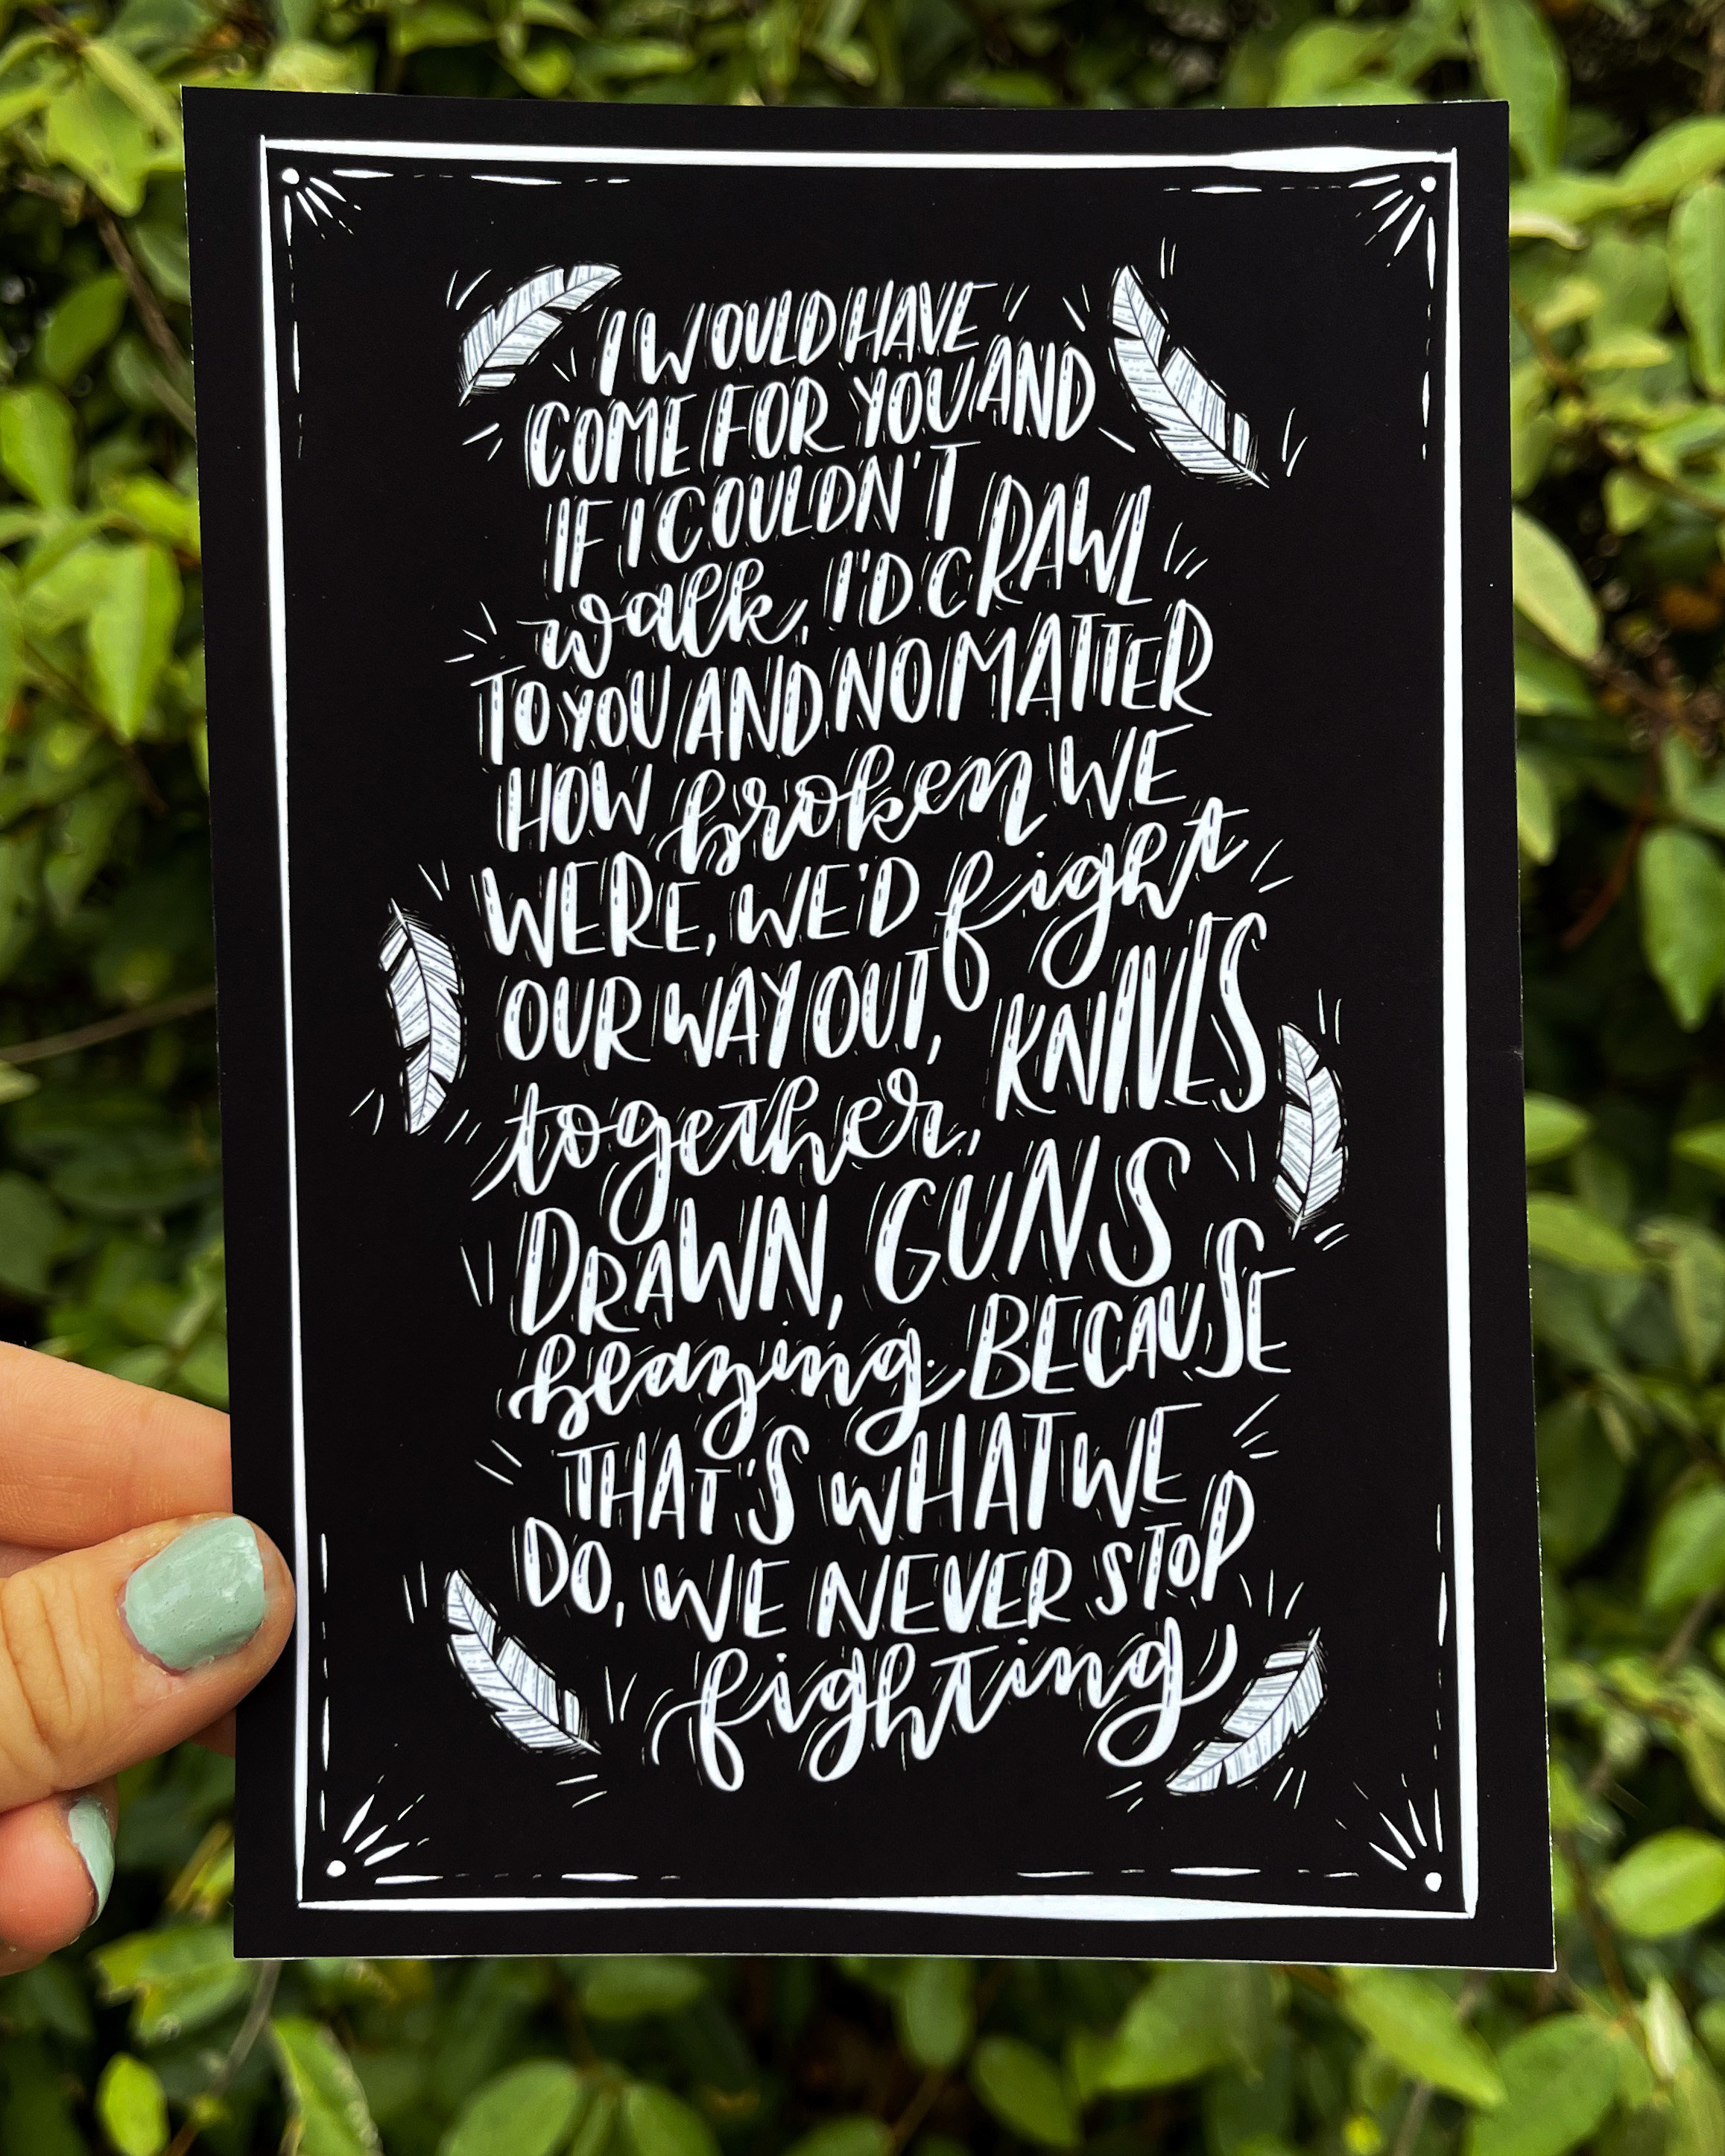 I WOULD HAVE
COME FOR YOU AND
IF I COULDN'T
walk, I'D CRAWL
TO YOU AND NO MATTER
HOW broken WE
WERE, WE'D fight
OUR WAY OUT,
together, KNIVES
DRAWN, GUNS
blazing. BECAUSE
THAT'S WHAT WE
DO, WE NEVER STOP
fighting